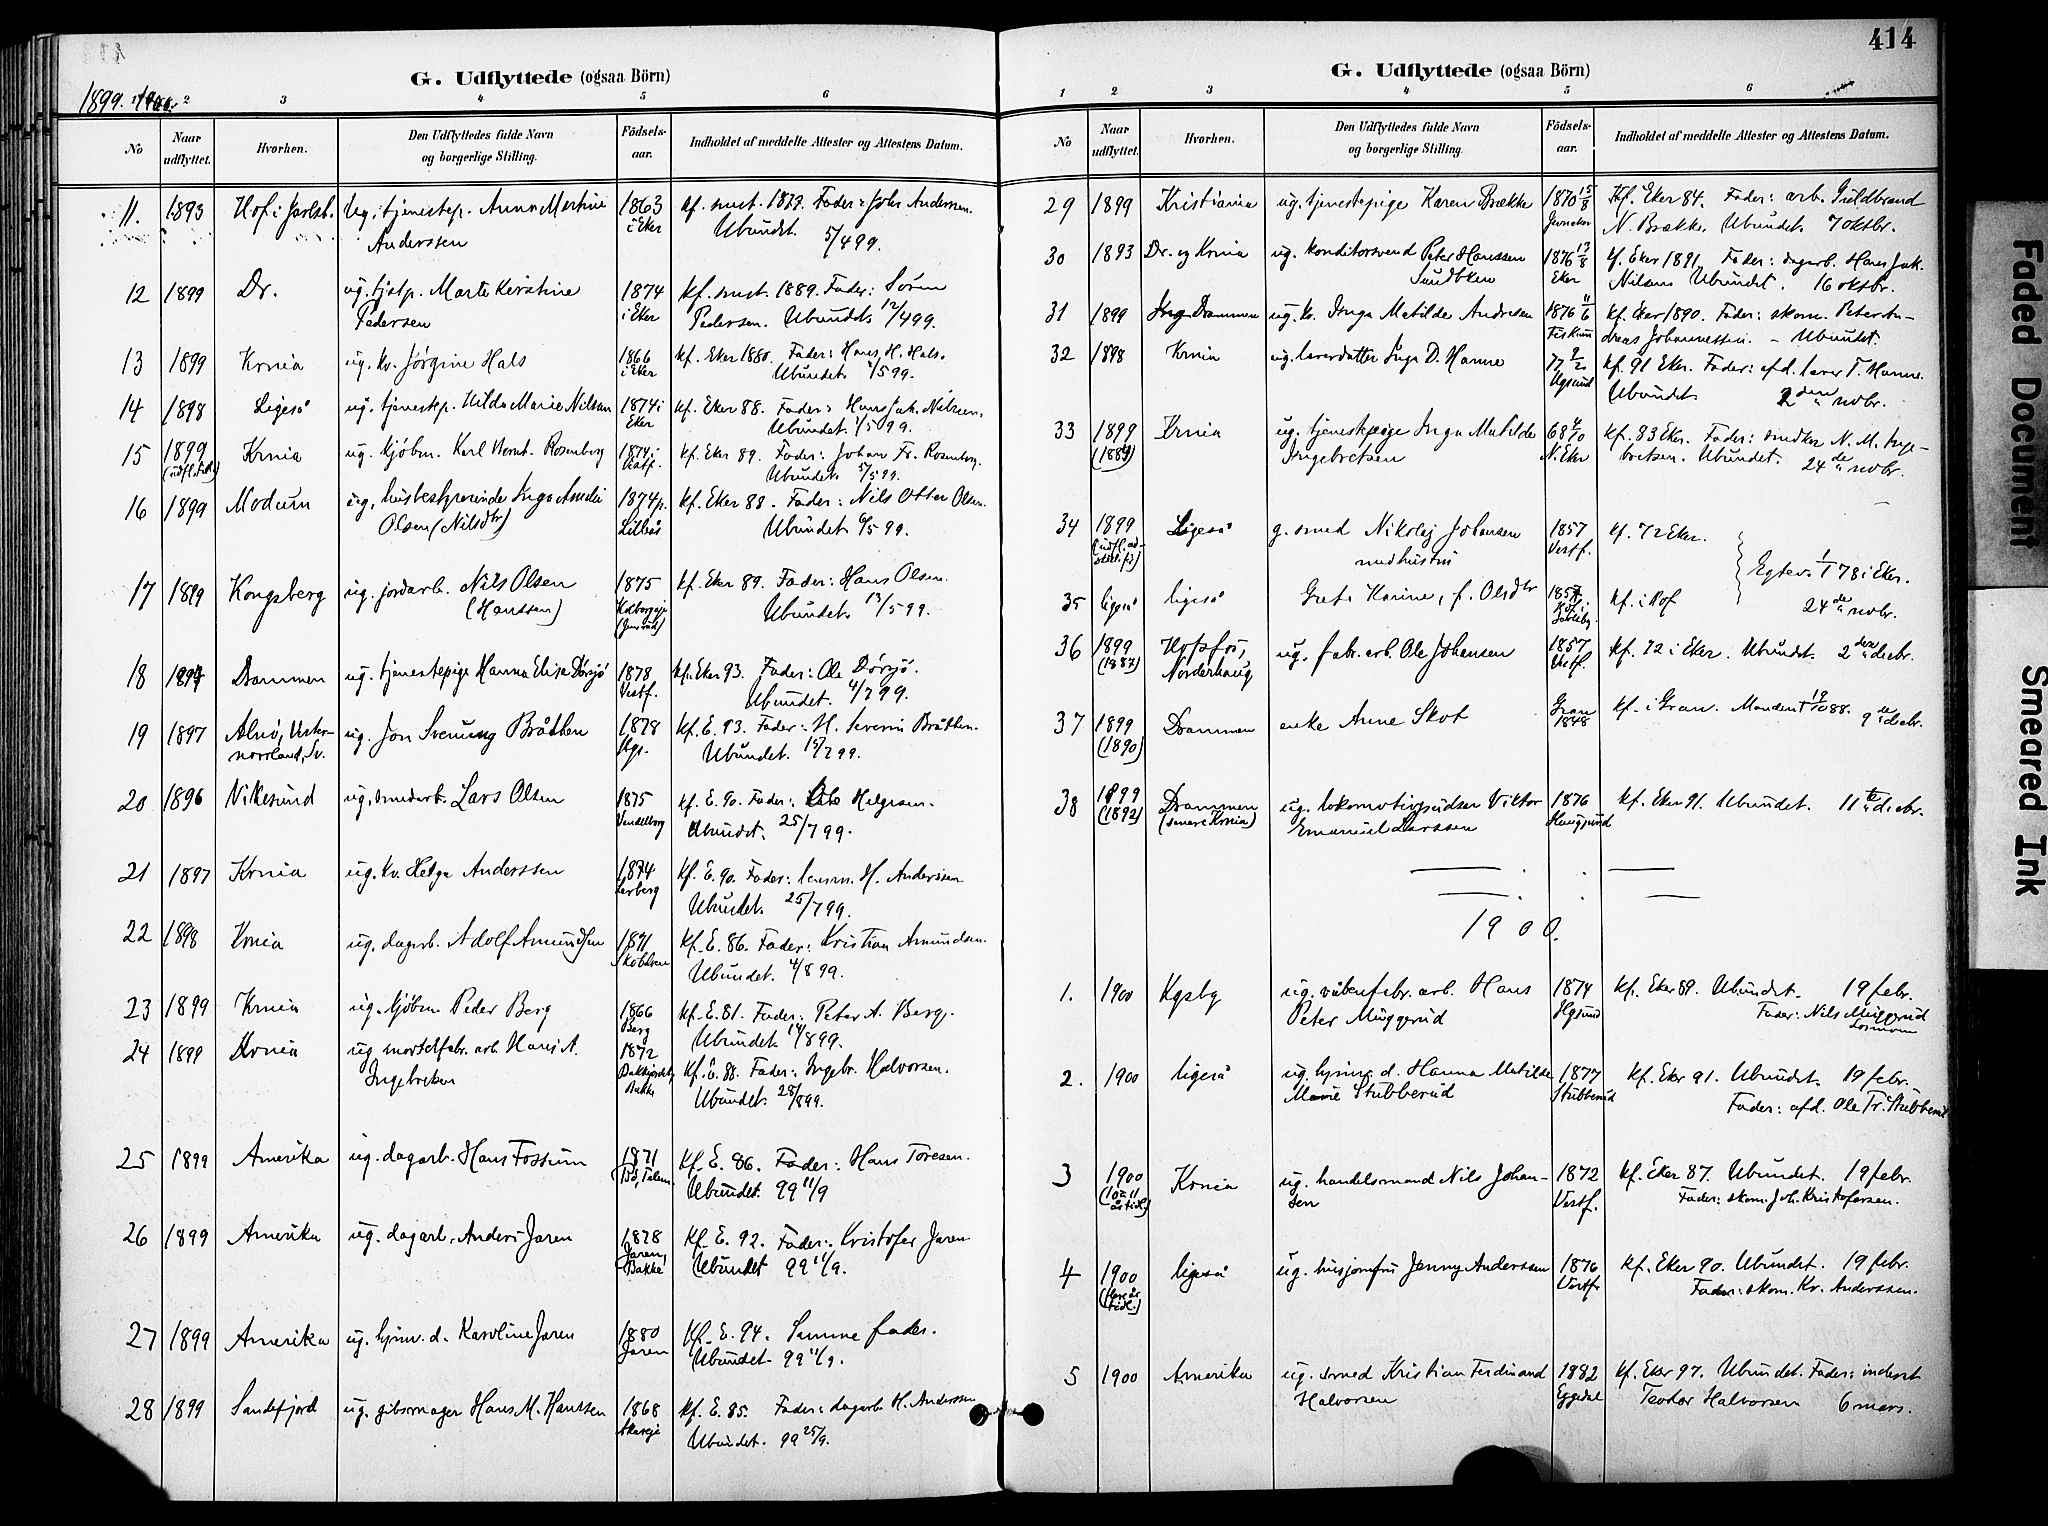 414
G. Udflyttede (ogsaa Börn)
1899. 1900.
1 2 3 4 5 6
No
Naar udflyttet.
Hvorhen.
Den Udflyttedes fulde Navn og borgerlige Stilling.
Födsels-aar.
Indholdet af meddelte Attester og Attestens Datum.
11. 1893 Hof i Jarlsb. ug. tjenestep. Anna Martine 1863 kf. smst. 1879. Fader: Johs Andersen.
Anderssen i Eker Ubundet. 5/4 99.
12 1899 Dr. ug. tjstp. Marte Kirstine 1874 kf. smst. 1889. Fader: Søren
Pedersen i Eker Pedersen. Ubundet. 12/4 99.
13 1899 Krnia ug. kv. Jørgine Hals 1866 kf. Eker 1880. Fader: Hans H. Hals.
i Eker Ubundet. /5 99.
14 1898 Ligeså ug. tjenestep. Hilda Marie Nilsen 1874 i kf. Eker 88. Fader: Hans Jak. Nilsen.
Eker Ubundet. 1/5 99.
15 1899 Krnia ug. kjøbm. Karl Bernt. Rosenberg 1874 i kf. Eker 89. Fader: Johan Fr. Rosenberg.
(udfl. tidl.) Vestf. Ubundet. 5/5 99.
16 1899 Modum ug. husbestyrerinde Inga Amalie 1874 p. kf. Eker 88. Fader: Nils Otter Olsen.
Olsen (Nilsdtr) Ubundet. 6/5 99.
17 1899 Kongsberg ug. jordarb. Nils Olsen 1875 kf. Eker 89. Fader: Hans Olsen.
(Hanssen) Ubundet. 13/5 99.
18 1897 Drammen ug. tjenestepige Hanna Elise Dørsjø 1878 kf. Eker 93. Fader: Ole Dørsjø.
Vestf. Ubundet. 4/7 99.
19 1897 Alnö, Vester- ug. Jon Svenung Bråthen 1878 kf. E. 93. Fader: H. Severin Bråthen.
norrland, Sv. Hgs. Ubundet. 15/7 99.
20 1896 Vikesund ug. smedarb. Lars Olsen 1875 kf. E. 90. Fader: Helgesen.
Vendelborg Ubundet. 25/7 99.
21 1897 Krnia ug. kv. Helga Anderssen 1874 kf. E. 90. Fader: lensm. H. Andersen
Lerberg Ubundet. 25/7 99.
22 1898 Krnia ug. dagarb. Adolf Amundsen 1871 kf. E. 86. Fader: Kristian Amundsen.
Ubundet. 4/8 99.
23 1899 Krnia ug. kjøbm Peder Berg 1866 kf. E. 81. Fader: Peter A. Berg.
Berg Ubundet. 14/8 99.
24 1899 Krnia ug. mortelfabr. arb. Hans A. 1872 kf. E. 88. Fader: Ingebr. Halvorsen.
Ingebretsen Bakke Ubundet. 28/8 99.
25 1899 Amerika ug. dagarb. Hans Fossum 1871 kf. E. 86. Fader: Hans Toresen.
Bø, Telem. Ubundet. 99 11/9
26 1899 Amerika ug. dagarb. Anders Jaren 1878 kf. E. 92. Fader: Kristofer Jaren
Jaren, Bakke Ubundet 99 11/9.
27 1899 Amerika ug. hjmv. d. Karoline Jaren 1880 kf. E. 94. Samme fader.
Jaren Ubundet. 99 11/9.
28 1899 Sandefjord ug. gibsmager Hans M. Hanssen 1868 kf. E. 85. Fader: dagarb. H. Anderssen
Ubundet. 99 25/9.
G. Udflyttede (ogsaa Börn)
1 2 3 4 5 6
No
Naar udflyttet.
Hvorhen.
Den Udflyttedes fulde Navn og borgerlige Stilling.
Födsels-aar.
Indholdet af meddelte Attester og Attestens Datum.
29 1899 Kristiania ug. tjenestepige Karen Brække 1870 15/8 kf. Eker 84. Fader: arb. Guldbrand
N. Brække. Ubundet. 7 oktbr.
30 1893 Dr. og Krnia ug. konditorsvend Peter Hanssen 1876 17/8 kf. Eker 1891. Fader: dagarb. Hans Jak.
Sundbken Eker Nilsen Ubundet. 16 oktbr.
31 1899 Drammen ug. kv. Inga Matilde Andresen 1876 11/6 kf. Eker 1890. Fader: skom. Peter An-
Fiskum dreas Johannessen. - Ubundet.
32 1898 Krnia ug. laverdatter Inga D. Hamne 77 kf. 91 Eker. Fader: afd. laver T. Hamne.
Hgsund Ubundet. 2 den nvbr.
33 1899 Krnia ug. tjenestepige Inga Matilde 68 /10 kf. 83 Eker. Fader: smedkr N. M. Inge-
(1889) Ingebretsen N. Eker bretsen. Ubundet. 24 de nvbr.
34 1899 Ligeså g. smed Nikolej Johansen 1857 kf. 72 Eker.
med hustru Vestf. Egtev. 1/1 78 i Eker.
35 ligeså ligeså Grete Karine, f. Olsdtr 1857 kf. i Hof 24 de nvbr.
36 1899 Hofsfos, ug. fabr. arb. Ole Johansen 1857 kf. 72 i Eker. Ubundet. 2 den decbr.
(1887) Norderhaug Vestf.
37 1899 Drammen enke Anne Skot Gran kf. i Gran. Manden † 19/10 88. 9 de decbr.
(1890) 1848
38 1899 Drammen ug. lokomotivpudser Viktor 1876 kf. Eker 91. Ubundet. 11 te decbr.
(1892) (senere Krnia) Emanuel Larssen Haugsund
1900.
1. 1900 Kgsbg ug. våbenfabr. arb. Hans 1874 kf. Eker 89. Ubundet. 19 febr.
Peter Muggerud Hgsund Fader: Nils Muggerud
2. 1900 ligeså ug. hjmv. d. Hanna Matilde 1877 kf. Eker 91. Ubundet. 19 febr.
Marie Stubberud Stubberud Fader: afd. Ole Tr. Stubberud
3 1900 Krnia ug. handelsmand Nils Johan- 1872 kf. Eker 87. Ubundet. 19 febr.
(10 a 11 år tidl.) sen Vestf. Fader: skom. Joh. Kristofersen.
4 1900 ligeså ug. husjomfru Jenny Anderssen 1876 kf. Eker 90. Ubundet. 19 febr.
(flere år tidl.) Vestf. Fader: skom. Kr. Anderssen.
5 1900 Amerika ug. smed Kristian Ferdinand 1882 kf. Eker 97. Ubundet. Fader: inderst
Halvorsen Eggedal Teodor Halvorsen 6 mars.
Faded Document
Smeared Ink